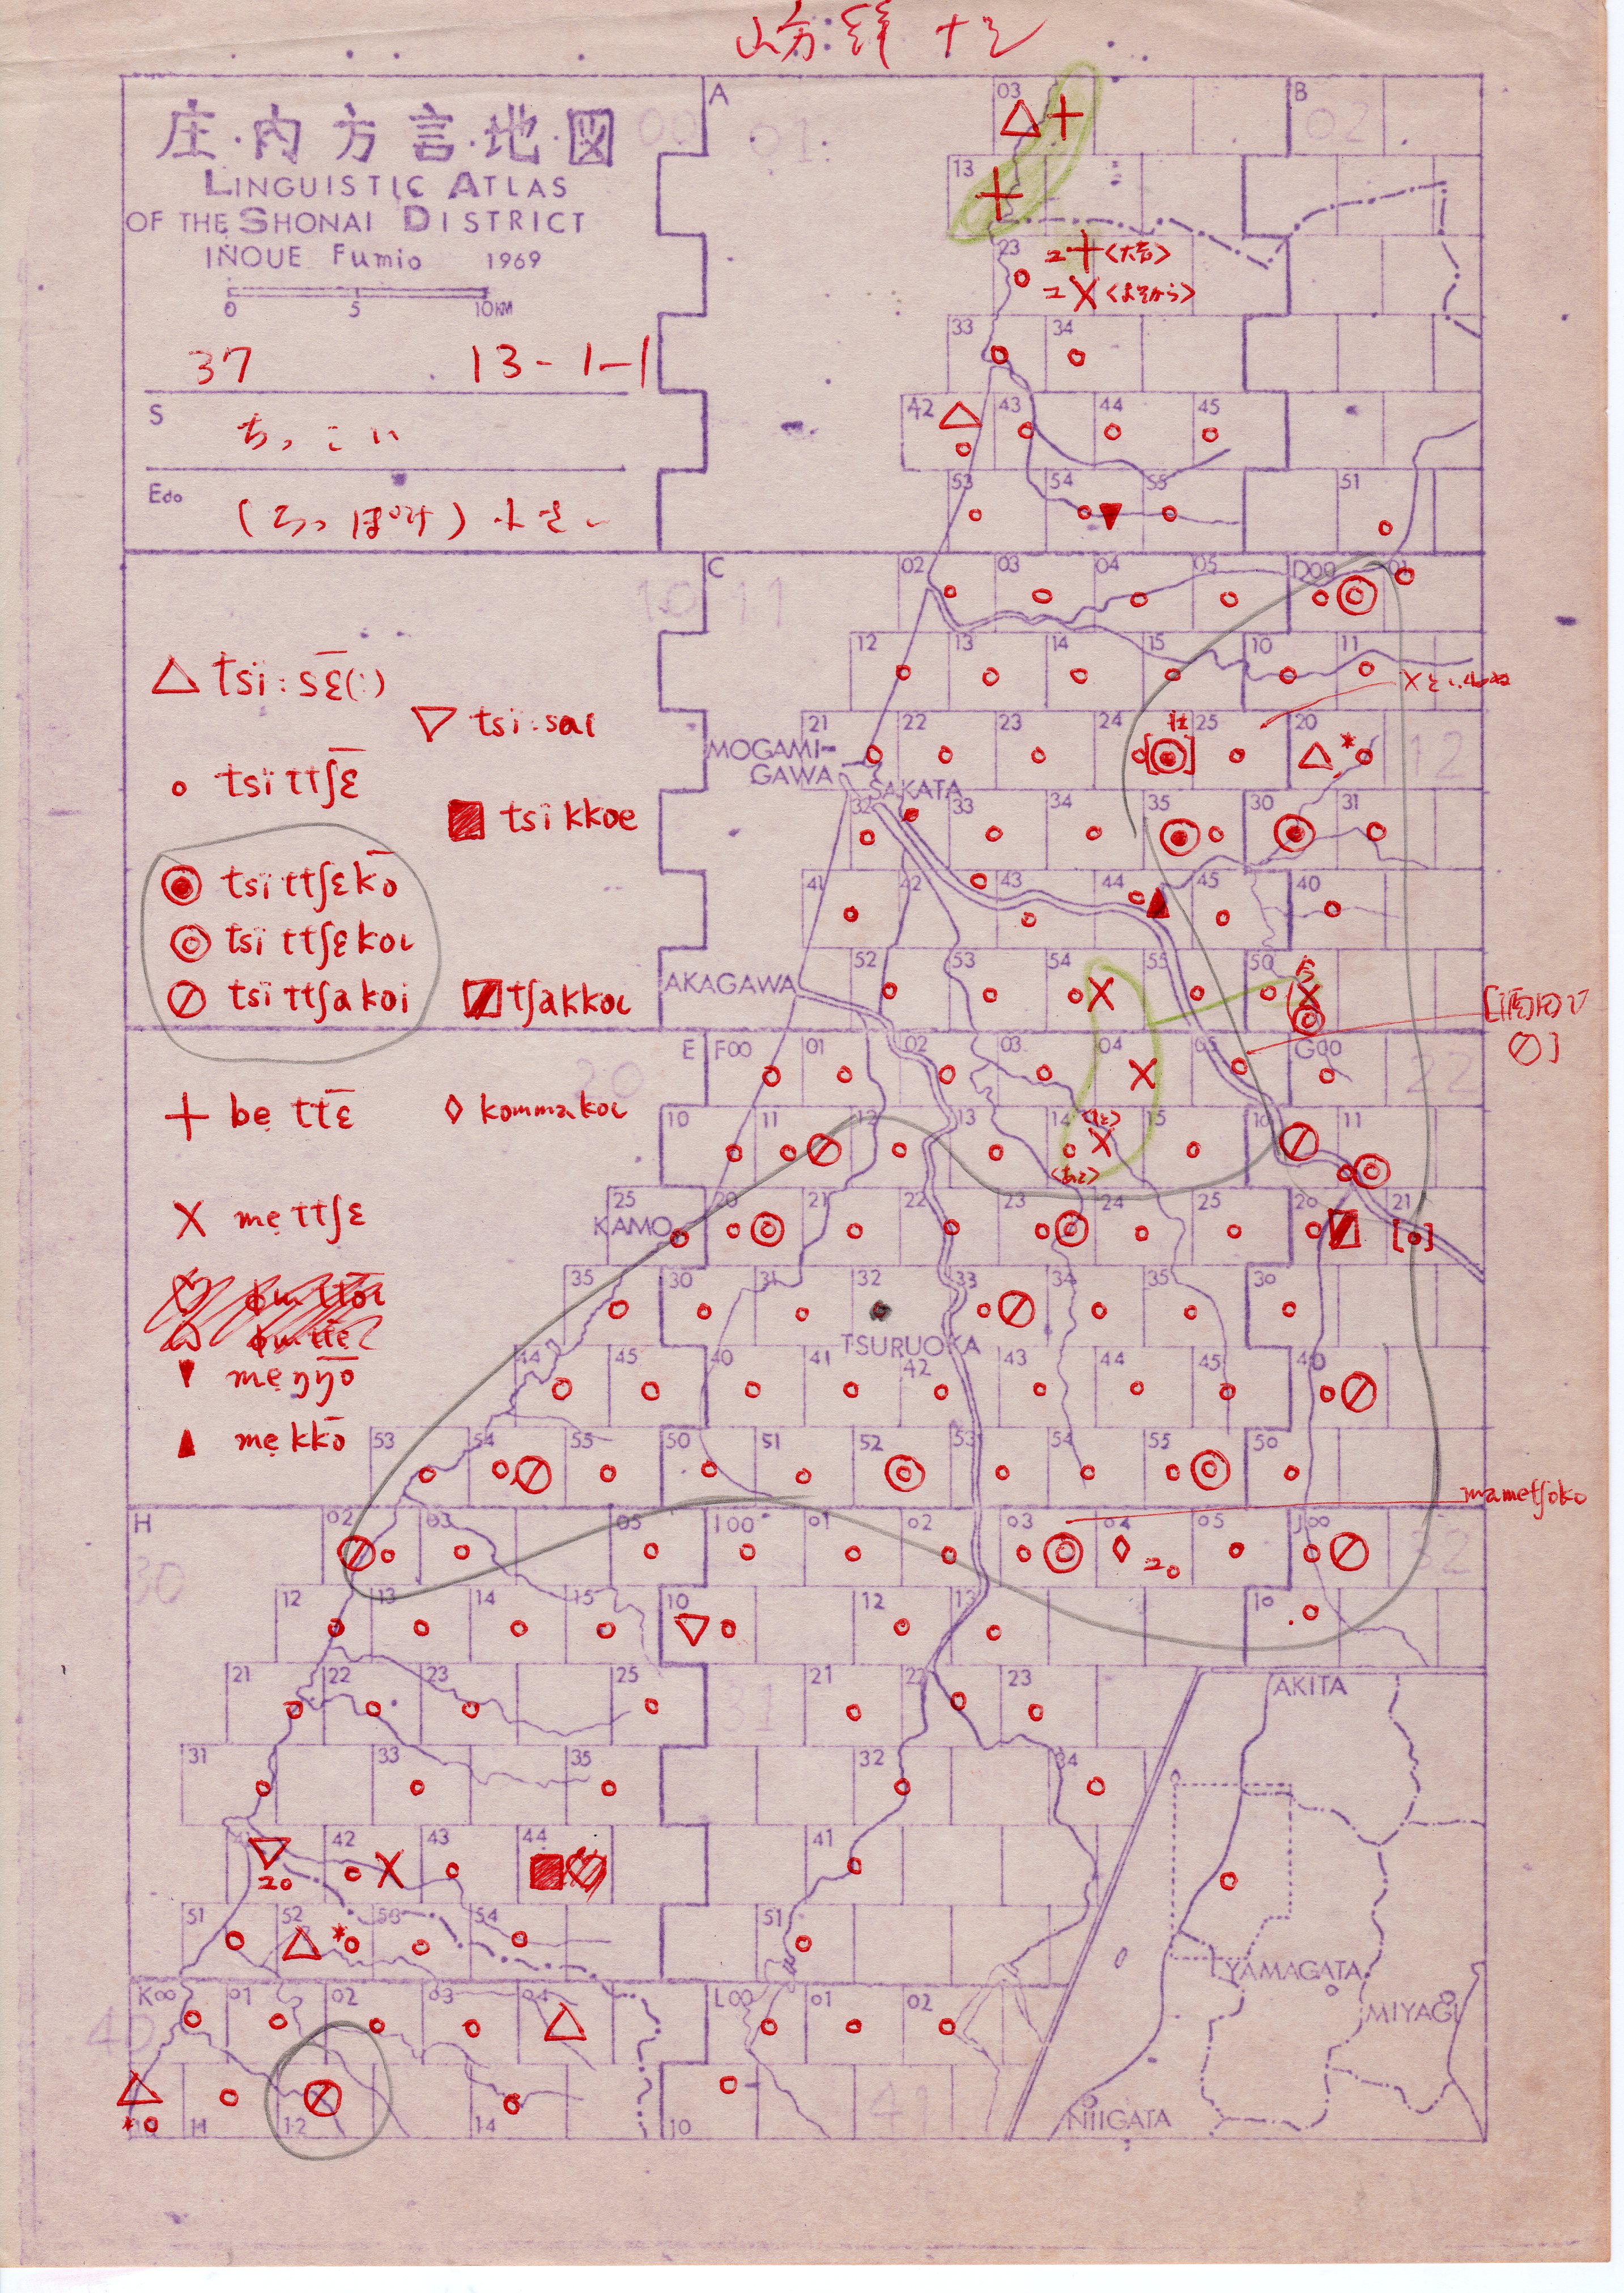 庄・内・方・言・地・図
LINGUISTIC ATLAS
OF THE SHONAI DISTRICT
INOUE Fumio 1969
0 5 10KM
37 13-1-1
S ちっこい
Edo
A
03
B
02
01
13
23
<大きい>
<よそから>
33 34
42 43 44 45
53 54 55 51
C 02 03 04 05 D00 01
10 11
12 13 14 15 10 11
△ tsï:sɛ̄(:)
▽ tsï:saɩ
○ tsïttʃɛ̄
■ tsïkkoe
◉ tsïttʃɛkō
◎ tsïttʃɛkoɩ
⊘ tsïttʃakoi
tʃakkoɩ
+ bẹttɛ̄
◇ kommakoɩ
× mẹttʃɛ
▼ mẹŋŋō
▲ mẹkkō
21 22 23 24 25 20
12
MOGAMI-
GAWA
SAKATA
32 33 34 35 30 31
41 42 43 44 45 40
52 53 54 55 50
AKAGAWA
E F00 01 02 03 04 05 G00
20 22
10 11 12 13 14 15 10 11
25 20 21 22 23 24 25 20 21
KAMO
35 30 31 32 33 34 35 30
TSURUOKA
44 45 40 41 42 43 44 45 40
53 54 55 50 51 52 53 54 55 50
mametʃoko
H 02 03 05 I00 01 02 03 04 05 J00
30 32
12 13 14 15 10 12 13 10
21 22 23 25 21 22 23
31
31 33 35 32 34
42 43 44 41
51 52 53 54 51
K00 01 02 03 04 L00 01 02
40
11 12 14 10
41
AKITA
YAMAGATA
MIYAGI
NIIGATA